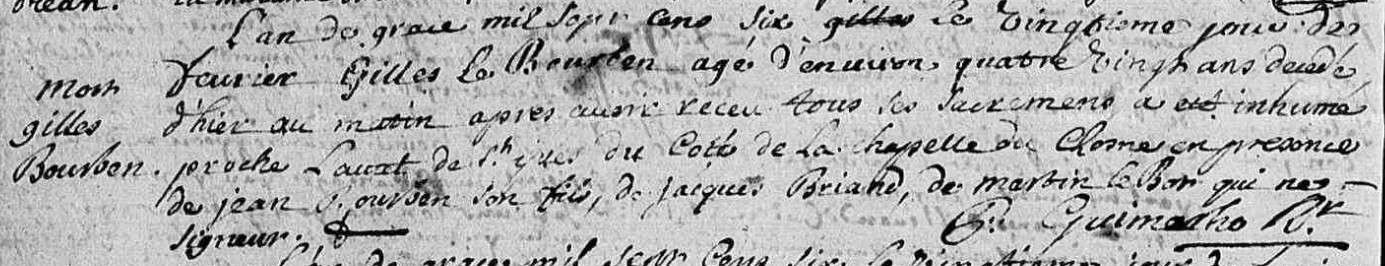 L'an de grace mil sept cens six gilles le vingtieme jour de
fevrier Gilles Le Bourben agé d'environ quatre vingt ans decedé
mort
gilles
Bourben.
d'hier au matin apres avoir receu tous ses sacremens a eté inhumé
proche L'autel de St yves du Coté de La chapelle du Clome en presence
de jean Bourben son fils, de jacques Briand, de martin le Bor qui ne
signeur.
G. Guimarho Rr.
L'an de grace mil sept Cens six le vingtieme jour d